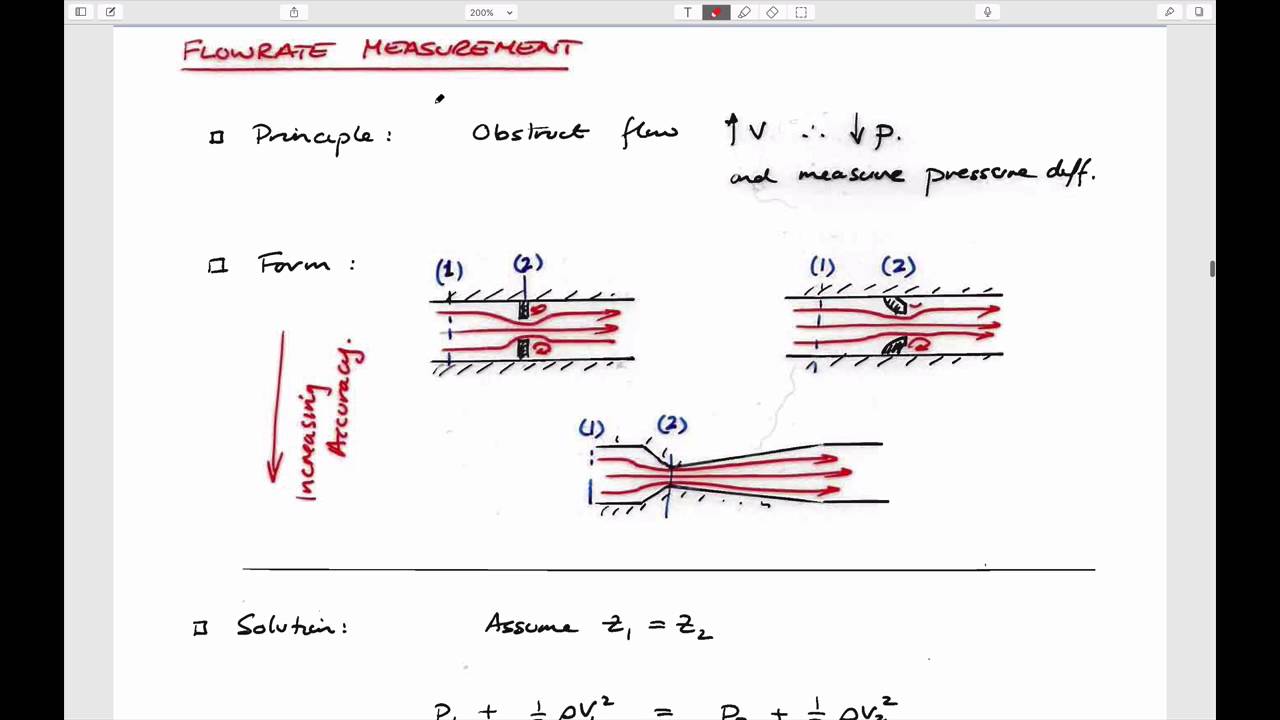 200%
T
FLOWRATE MEASUREMENT
Principle: Obstruct flow ↑V ∴ ↓p.
and measure pressure diff.
Form:
(1) (2)
(1) (2)
Increasing Accuracy.
(1) (2)
Solution: Assume Z₁ = Z₂
P₁ + ½ ρV₁² = P₂ + ½ ρV₂²